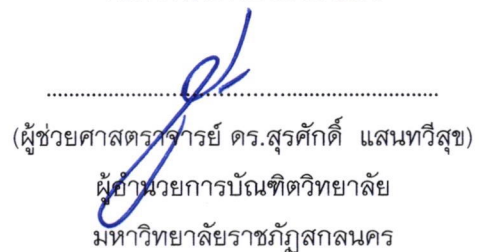 (ผู้ช่วยศาสตราจารย์ ดร.สุรศักดิ์ แสนทวีสุข)
ผู้อำนวยการบัณฑิตวิทยาลัย
มหาวิทยาลัยราชภัฏสกลนคร